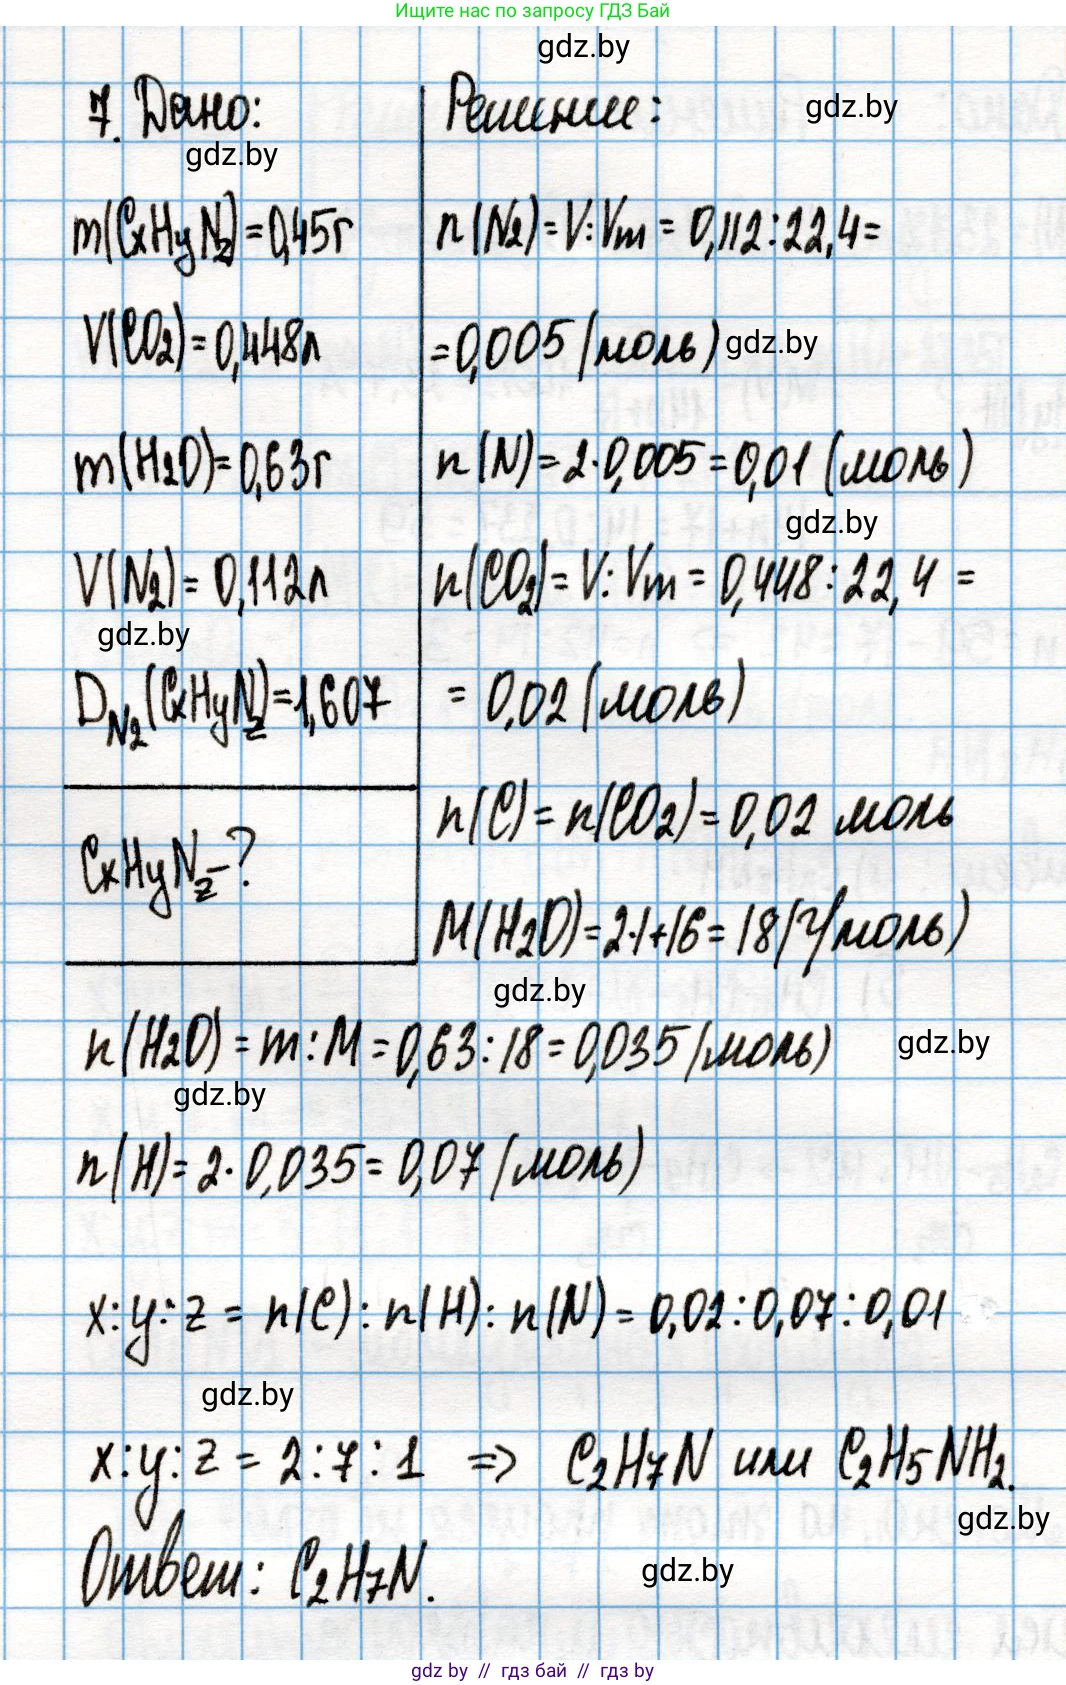 Ищите нас по запросу ГДЗ Бай
gdz.by
7. Дано:
gdz.by
m(CxHyNz)=0,45г
V(CO2)=0,448л
m(H2O)=0,63г
V(N2)=0,112л
gdz.by
DN2(CxHyNz)=1,607
CxHyNz-?
Решение:
gdz.by
n(N2)=V:Vm=0,112:22,4=
=0,005(моль)
gdz.by
n(N)=2·0,005=0,01(моль)
gdz.by
n(CO2)=V:Vm=0,448:22,4=
=0,02(моль)
n(C)=n(CO2)=0,02 моль
M(H2O)=2·1+16=18(г/моль)
gdz.by
n(H2O)=m:M=0,63:18=0,035(моль)
gdz.by
gdz.by
n(H)=2·0,035=0,07(моль)
x:y:z=n(C):n(H):n(N)=0,02:0,07:0,01
gdz.by
x:y:z=2:7:1 => C2H7N или C2H5NH2.
gdz.by
Ответ: C2H7N.
gdz.by
gdz by // гдз бай // гдз by